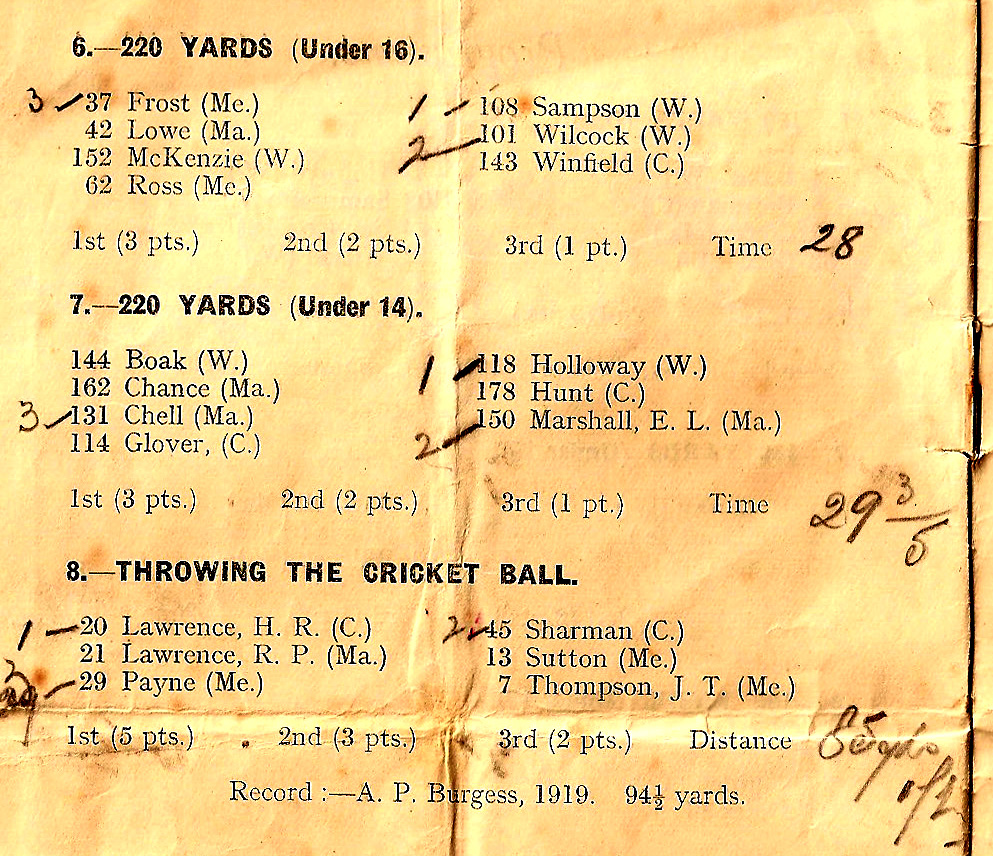 6.—220 YARDS (Under 16).
3 37 Frost (Me.)
42 Lowe (Ma.)
152 McKenzie (W.)
62 Ross (Me.)
1 108 Sampson (W.)
2 101 Wilcock (W.)
143 Winfield (C.)
1st (3 pts.) 2nd (2 pts.) 3rd (1 pt.) Time 28
7.—220 YARDS (Under 14).
144 Boak (W.)
162 Chance (Ma.)
3 131 Chell (Ma.)
114 Glover, (C.)
1 118 Holloway (W.)
178 Hunt (C.)
2 150 Marshall, E. L. (Ma.)
1st (3 pts.) 2nd (2 pts.) 3rd (1 pt.) Time 29 3/5
8.—THROWING THE CRICKET BALL.
1 20 Lawrence, H. R. (C.)
21 Lawrence, R. P. (Ma.)
3 29 Payne (Me.)
2 45 Sharman (C.)
13 Sutton (Me.)
7 Thompson, J. T. (Me.)
1st (5 pts.) 2nd (3 pts.) 3rd (2 pts.) Distance 85 yds
Record :—A. P. Burgess, 1919. 94½ yards.